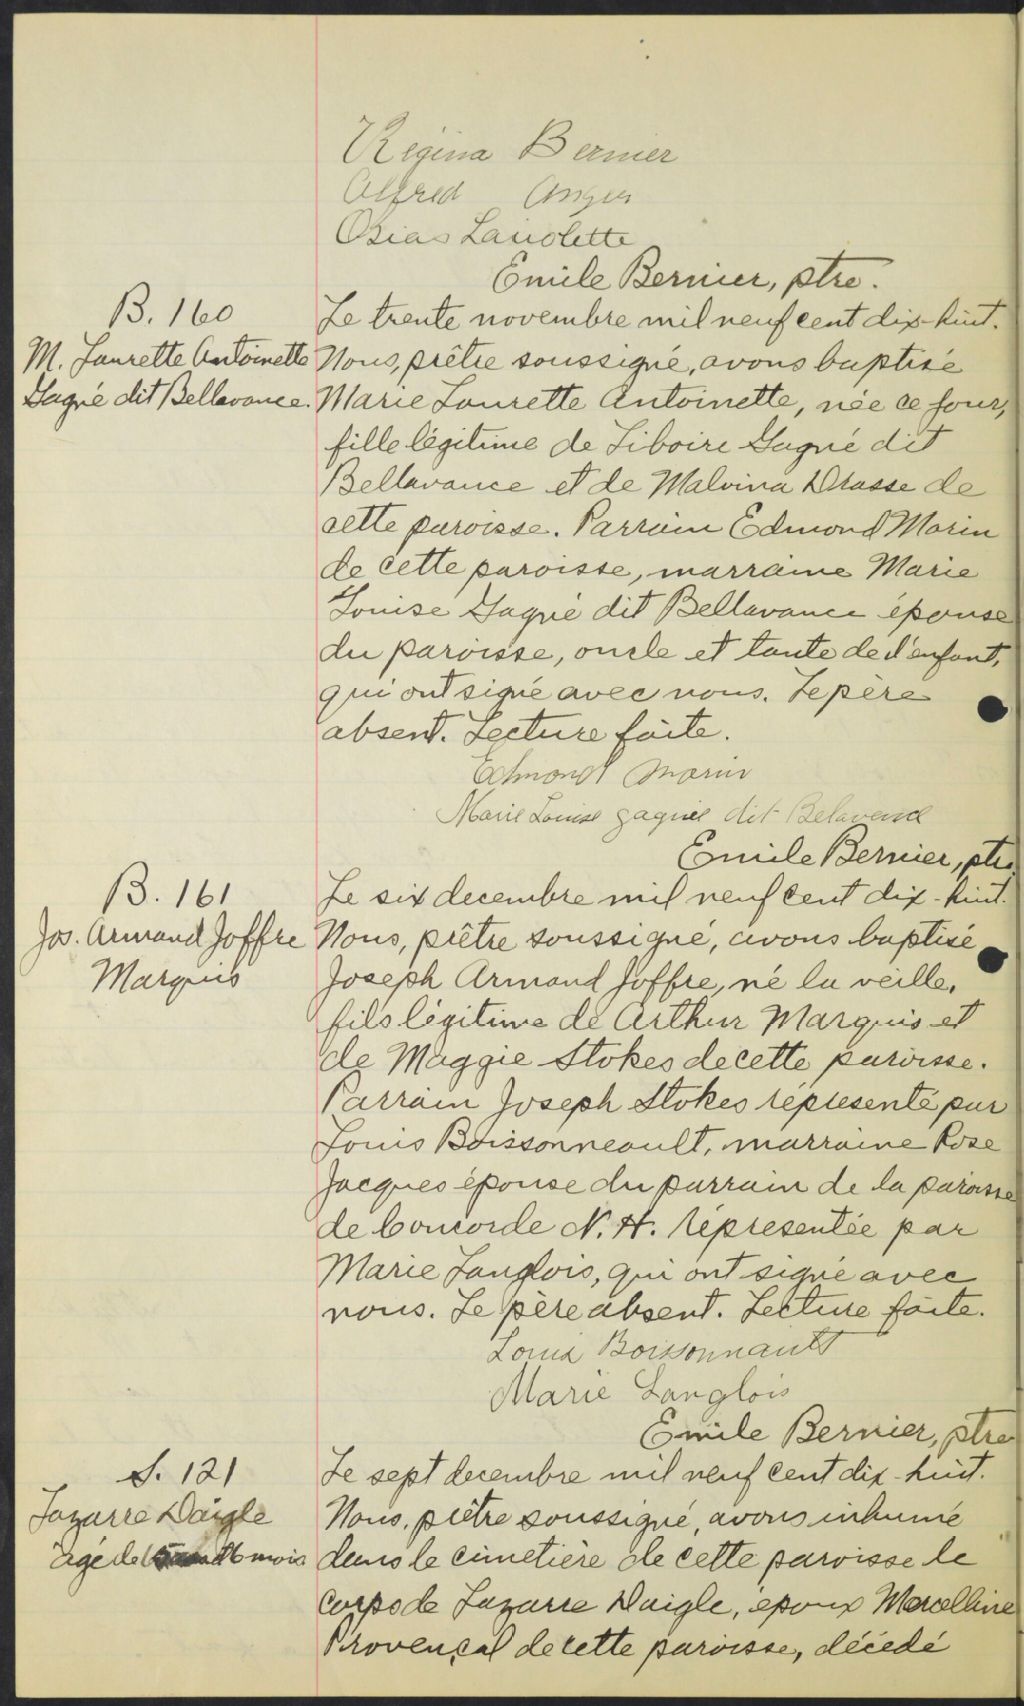 Régina Bernier
Alfred Angers
Osias Laviolette
Emile Bernier, ptre.
B. 160
M. Laurette Antoinette
Gagné dit Bellavance.
Le trente novembre mil neuf cent dix-huit.
Nous, prêtre soussigné, avons baptisé
Marie Laurette Antoinette, née ce jour,
fille légitime de Liboire Gagné dit
Bellavance et de Malvina Drasse de
cette paroisse. Parrain Edmond Morin
de cette paroisse, marraine Marie
Louise Gagné dit Bellavance épouse
du paroisse, oncle et tante de l'enfant,
qui ont signé avec nous. Le père
absent. Lecture faite.
Edmond Morin
Marie Louise gagnée dit Belavance
Emile Bernier, ptre
B. 161
Jos. Armand Joffre
Marquis
Le six decembre mil neuf cent dix-huit.
Nous, prêtre soussigné, avons baptisé
Joseph Armand Joffre, né la veille,
fils légitime de Arthur Marquis et
de Maggie Stokes de cette paroisse.
Parrain Joseph Stokes réprésenté par
Louis Boissonneault, marraine Rose
Jacques épouse du parrain de la paroisse
de Concorde N. H. réprésentée par
Marie Langlois, qui ont signé avec
nous. Le père absent. Lecture faite.
Louis Boissonnault
Marie Langlois
Emile Bernier, ptre
S. 121
Lazarre Daigle
agé de 6 mois
Le sept decembre mil neuf cent dix-huit.
Nous, prêtre soussigné, avons inhumé
dans le cimetière de cette paroisse le
corps de Lazarre Daigle, époux Marcelline
Provençal de cette paroisse, décédé